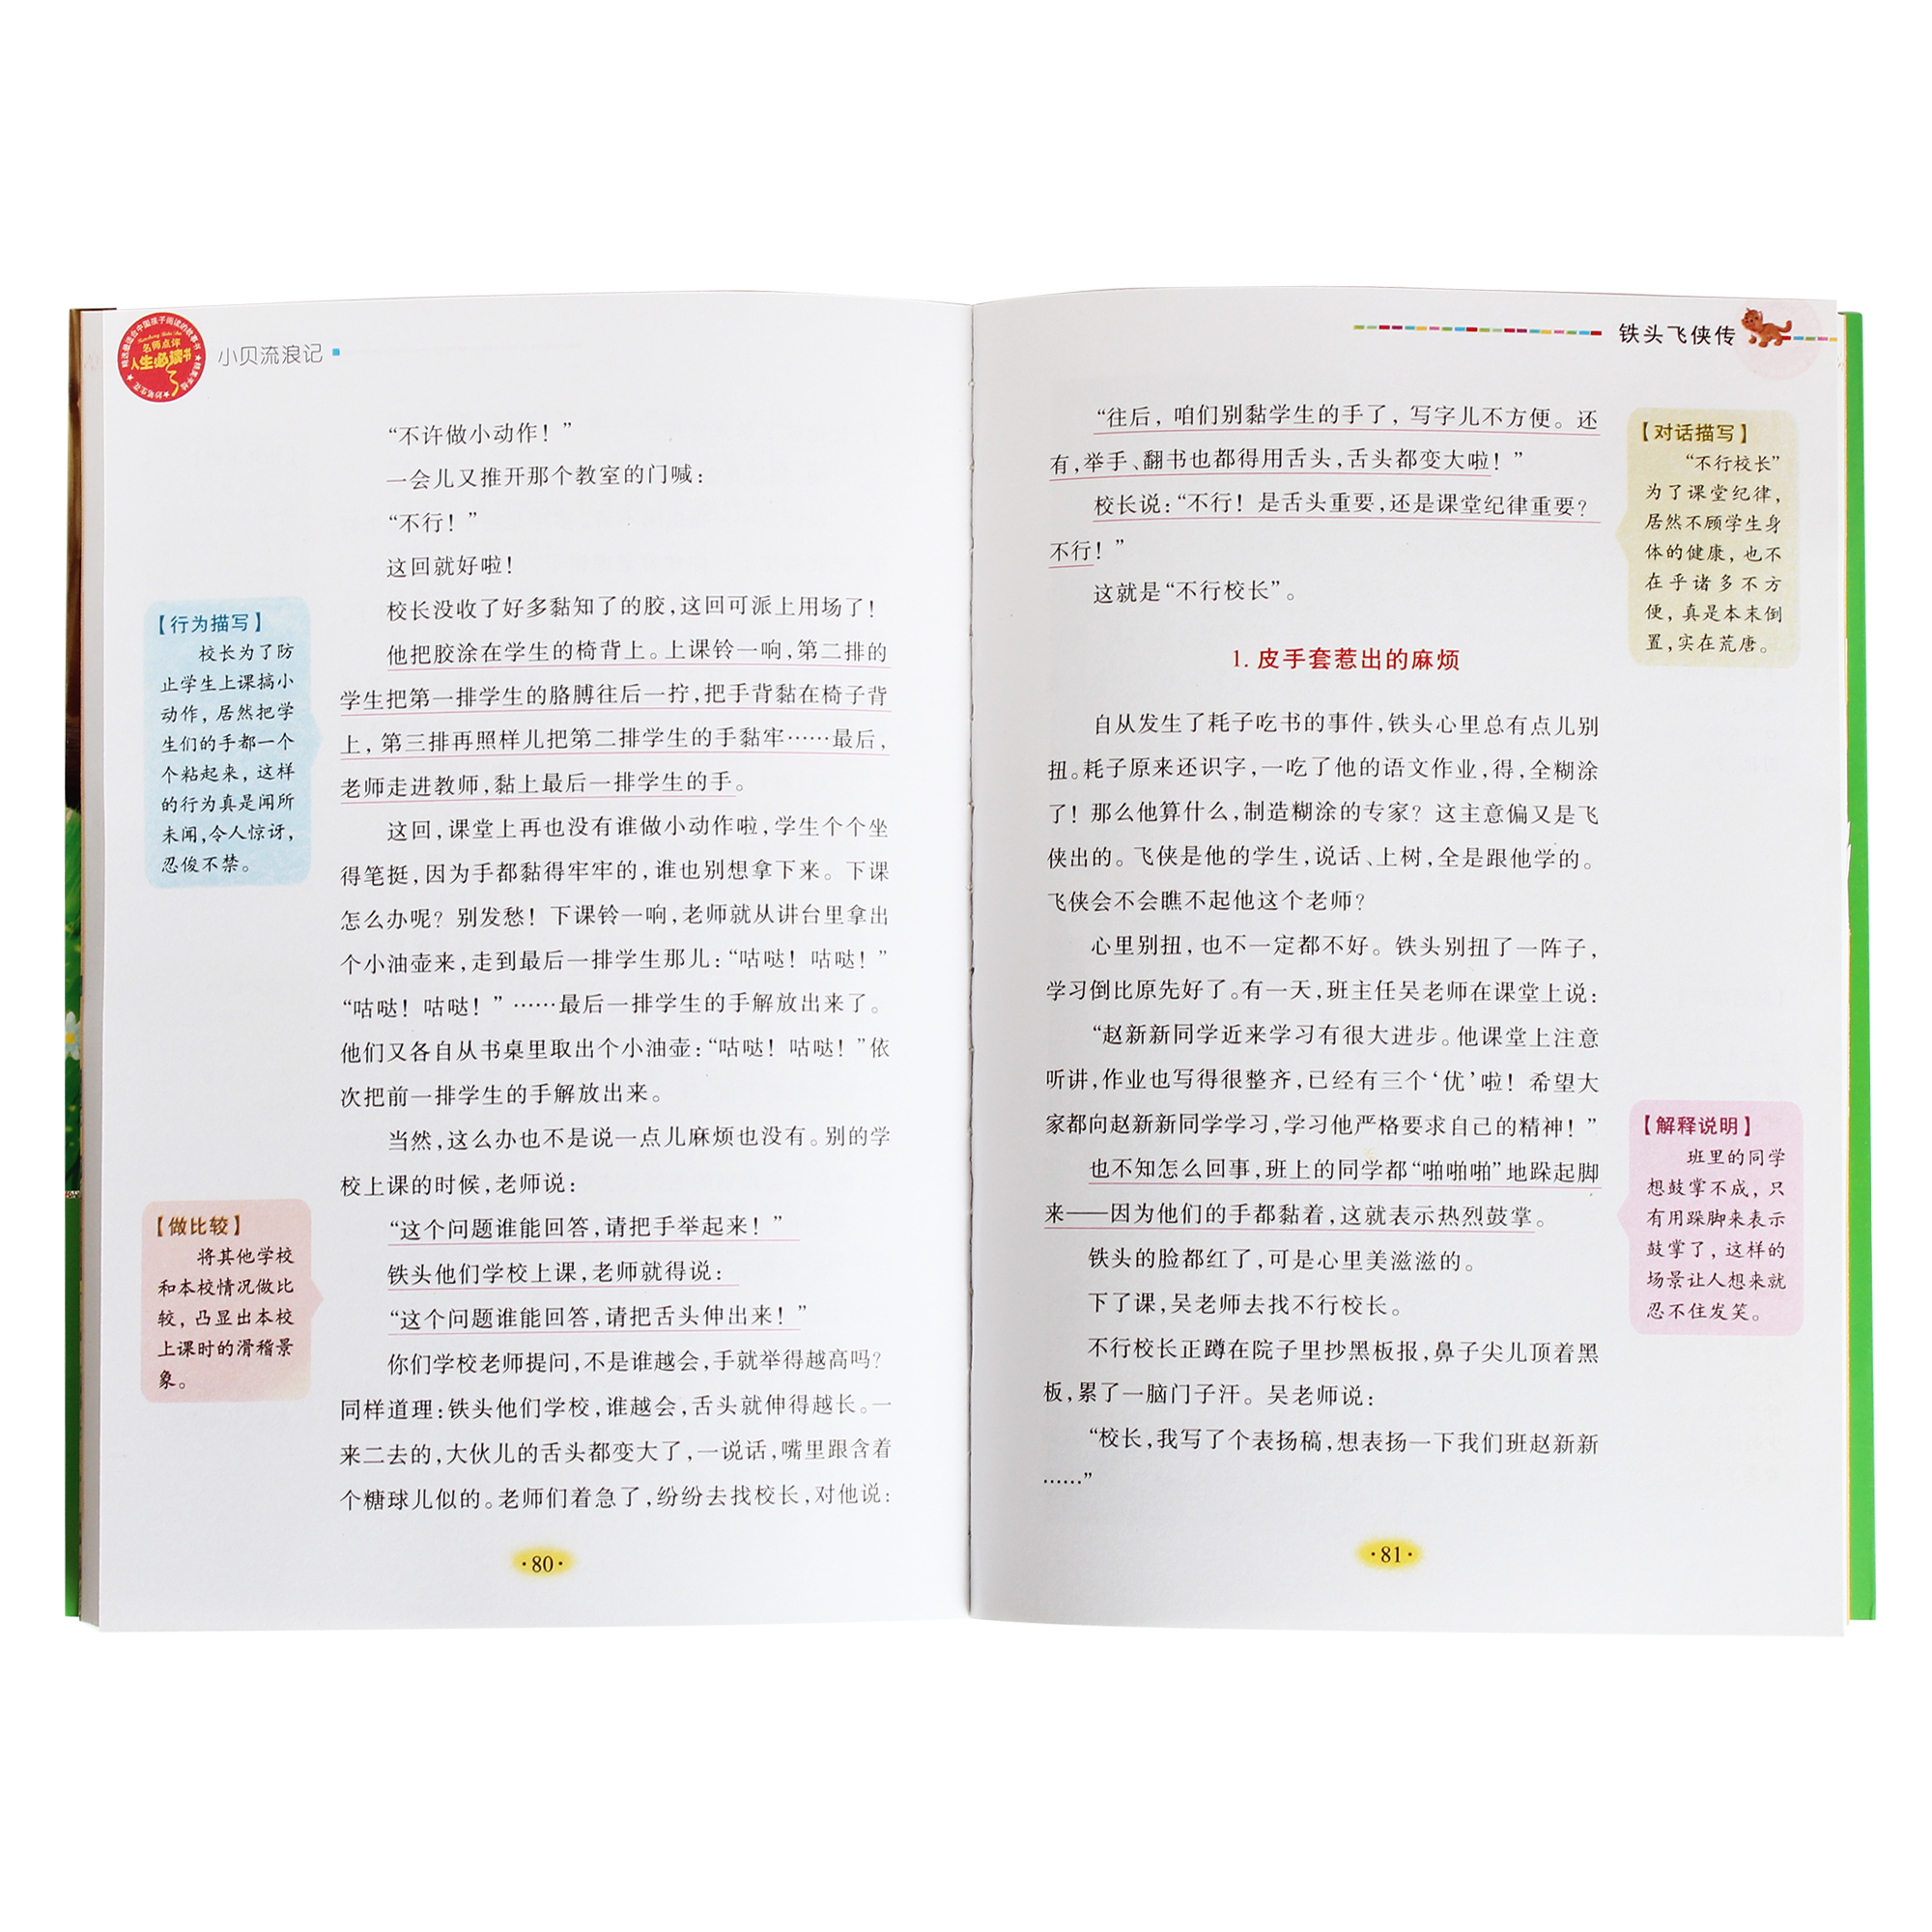 名师点评
人生必读书
小贝流浪记
“不许做小动作！”
一会儿又推开那个教室的门喊：
“不行！”
这回就好啦！
校长没收了好多黏知了的胶，这回可派上用场了！
他把胶涂在学生的椅背上。上课铃一响，第二排的
学生把第一排学生的胳膊往后一拧，把手背黏在椅子背
上，第三排再照样儿把第二排学生的手黏牢……最后，
老师走进教师，黏上最后一排学生的手。
这回，课堂上再也没有谁做小动作啦，学生个个坐
得笔挺，因为手都黏得牢牢的，谁也别想拿下来。下课
怎么办呢？别发愁！下课铃一响，老师就从讲台里拿出
个小油壶来，走到最后一排学生那儿：“咕哒！咕哒！”
“咕哒！咕哒！”……最后一排学生的手解放出来了。
他们又各自从书桌里取出个小油壶：“咕哒！咕哒！”依
次把前一排学生的手解放出来。
当然，这么办也不是说一点儿麻烦也没有。别的学
校上课的时候，老师说：
“这个问题谁能回答，请把手举起来！”
铁头他们学校上课，老师就得说：
“这个问题谁能回答，请把舌头伸出来！”
你们学校老师提问，不是谁越会，手就举得越高吗？
同样道理：铁头他们学校，谁越会，舌头就伸得越长。一
来二去的，大伙儿的舌头都变大了，一说话，嘴里跟含着
个糖球儿似的。老师们着急了，纷纷去找校长，对他说：
【行为描写】
校长为了防
止学生上课搞小
动作，居然把学
生们的手都一个
个粘起来，这样
的行为真是闻所
未闻，令人惊讶，
忍俊不禁。
【做比较】
将其他学校
和本校情况做比
较，凸显出本校
上课时的滑稽景
象。
·80·
铁头飞侠传
“往后，咱们别黏学生的手了，写字儿不方便。还
有，举手、翻书也都得用舌头，舌头都变大啦！”
校长说：“不行！是舌头重要，还是课堂纪律重要？
不行！”
这就是“不行校长”。
1. 皮手套惹出的麻烦
自从发生了耗子吃书的事件，铁头心里总有点儿别
扭。耗子原来还识字，一吃了他的语文作业，得，全糊涂
了！那么他算什么，制造糊涂的专家？这主意偏又是飞
侠出的。飞侠是他的学生，说话、上树，全是跟他学的。
飞侠会不会瞧不起他这个老师？
心里别扭，也不一定都不好。铁头别扭了一阵子，
学习倒比原先好了。有一天，班主任吴老师在课堂上说：
“赵新新同学近来学习有很大进步。他课堂上注意
听讲，作业也写得很整齐，已经有三个‘优’啦！希望大
家都向赵新新同学学习，学习他严格要求自己的精神！”
也不知怎么回事，班上的同学都“啪啪啪”地跺起脚
来——因为他们的手都黏着，这就表示热烈鼓掌。
铁头的脸都红了，可是心里美滋滋的。
下了课，吴老师去找不行校长。
不行校长正蹲在院子里抄黑板报，鼻子尖儿顶着黑
板，累了一脑门子汗。吴老师说：
“校长，我写了个表扬稿，想表扬一下我们班赵新新
……”
【对话描写】
“不行校长”
为了课堂纪律，
居然不顾学生身
体的健康，也不
在乎诸多不方
便，真是本末倒
置，实在荒唐。
【解释说明】
班里的同学
想鼓掌不成，只
有用跺脚来表示
鼓掌了，这样的
场景让人想来就
忍不住发笑。
·81·